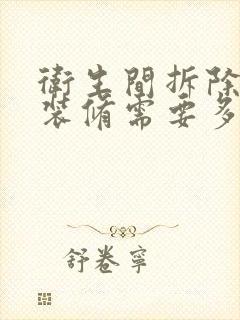 衛生間拆除
裝脩需要多
舒卷寧